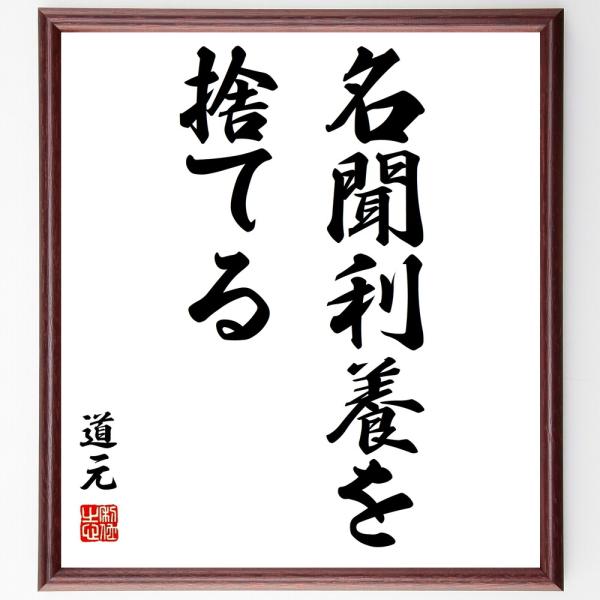 名聞利養を
捨てる
道元